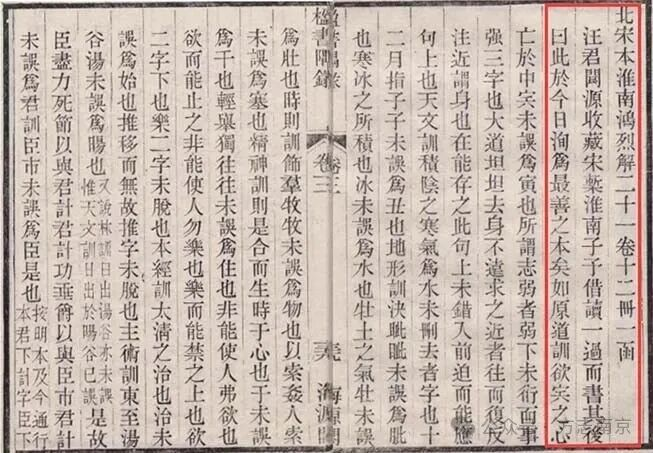 北宋本淮南鴻烈解二十一卷十二冊一函
汪君閬源收藏宋槧淮南子予借讀一過而書其後
曰此於今日洵爲最善之本矣如原道訓欲宍之心
亡於中宍未誤爲寅也所謂志弱者弱下未衍而事
强三字也大道坦坦去身不遠求之近者往而復反
注近謂身也在能存之此句上未錯入前迫而能應
句上也天文訓積陰之寒氣爲水未刪去者字也十
二月指子子未誤爲丑也地形訓決眦眦未誤爲肶
也寒冰之所積也冰未誤爲水也牡土之氣牡未誤
楹書隅錄
卷三
海源閣
爲壯也時則訓飭羣牧牧未誤爲物也以索姦人索
未誤爲塞也精神訓則是合而生時于心也于未誤
爲干也輕舉獨往往未誤爲住也非能使人弗欲也
欲而能止之非能使人勿樂也樂而能禁之上也欲
二字下也樂二字未脫也本經訓太清之治也治未
誤爲始也推移而無故推字未脫也主術訓東至湯
谷湯未誤爲暘也
又說林訓日出湯谷亦未誤
惟天文訓日出於暘谷已誤
是故
臣盡力死節以與君計君計功垂爵以與臣市君計
未誤爲君訓臣市未誤爲臣是也
按明本及今通行
本君下計字臣下
公众号 方志南京